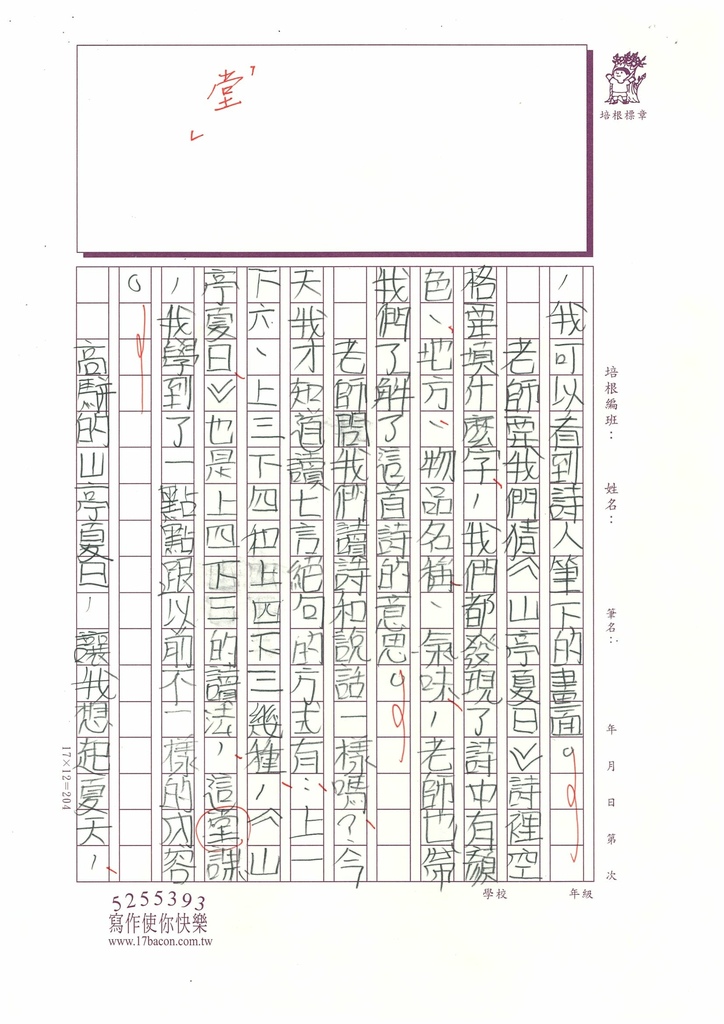 堂
培根標章
培根編班：
姓名：
筆名：
年 月 日 第 次
學校
年級
，我可以看到詩人筆下的畫面。
老師要我們猜︿山亭夏日﹀詩裡空
格要填什麼字，我們都發現了詩中有顏
色、地方、物品名稱、氣味，老師也帶
我們了解了這首詩的意思。
老師問我們讀詩和說話一樣嗎？今
天我才知道讀七言絕句的方式有：上一
下六、上三下四和上四下三幾種，︿山
亭夏日﹀也是上四下三的讀法，這堂課
，我學到了一點點跟以前不一樣的內容
。
高駢的山亭夏日，讓我想起夏天，
17×12=204
5255393
寫作使你快樂
www.17bacon.com.tw